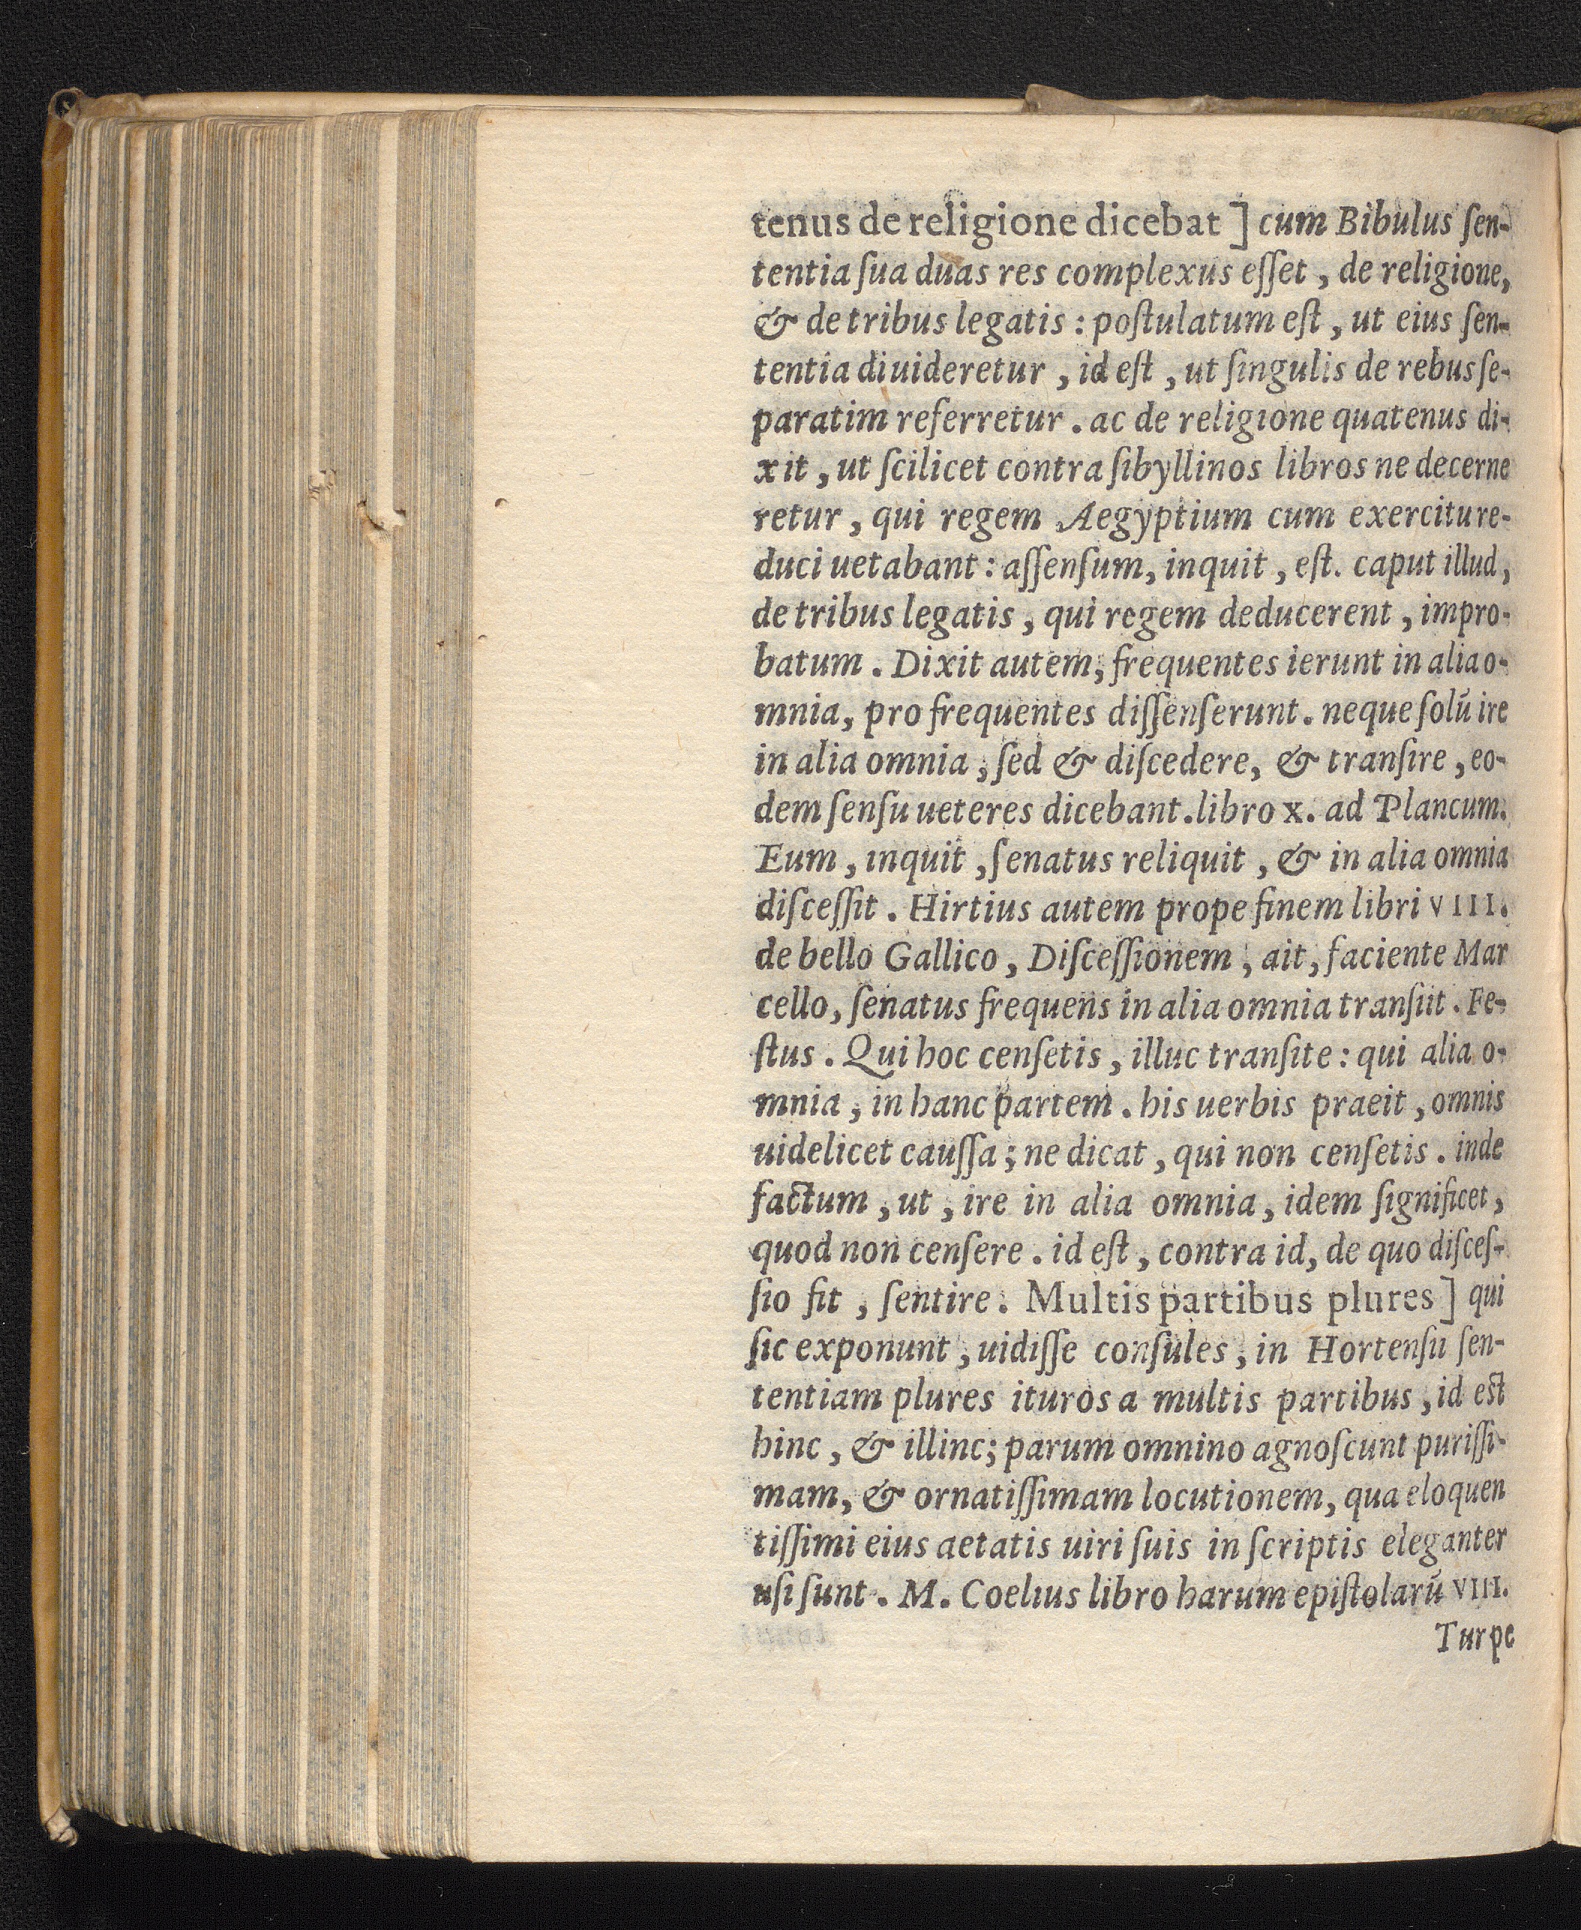 tenus de religione dicebat ] cum Bibulus ſen-
tentia ſua duas res complexus eſſet , de religione,
& de tribus legatis : poſtulatum eſt , ut eius ſen-
tentia diuideretur , id eſt , ut ſingulis de rebus ſe-
paratim referretur . ac de religione quatenus di-
xit , ut ſcilicet contra ſibyllinos libros ne decerne
retur , qui regem Aegyptium cum exercitu re-
duci uetabant : aſſenſum, inquit , eſt. caput illud ,
de tribus legatis , qui regem deducerent , impro-
batum . Dixit autem, frequentes ierunt in alia o-
mnia, pro frequentes diſſenſerunt. neque ſolũ ire
in alia omnia , ſed & diſcedere, & tranſire , eo-
dem ſenſu ueteres dicebant.libro x. ad Plancum.
Eum , inquit , ſenatus reliquit , & in alia omnia
diſceſſit . Hirtius autem prope finem libri VIII.
de bello Gallico , Diſceſſionem , ait, faciente Mar
cello, ſenatus frequens in alia omnia tranſiit . Fe-
ſtus . Qui hoc cenſetis , illuc tranſite : qui alia o-
mnia , in hanc partem . his uerbis praeit , omnis
uidelicet cauſſa ; ne dicat , qui non cenſetis . inde
factum , ut , ire in alia omnia , idem ſignificet ,
quod non cenſere . id eſt , contra id, de quo diſceſ-
ſio fit , ſentire . Multis partibus plures ] qui
ſic exponunt , uidiſſe conſules , in Hortenſii ſen-
tentiam plures ituros a multis partibus , id eſt
hinc , & illinc; parum omnino agnoſcunt puriſſi-
mam, & ornatiſſimam locutionem, qua eloquen
tiſſimi eius aetatis uiri ſuis in ſcriptis eleganter
uſi ſunt . M. Coelius libro harum epiſtolarũ VIII.
Turpe